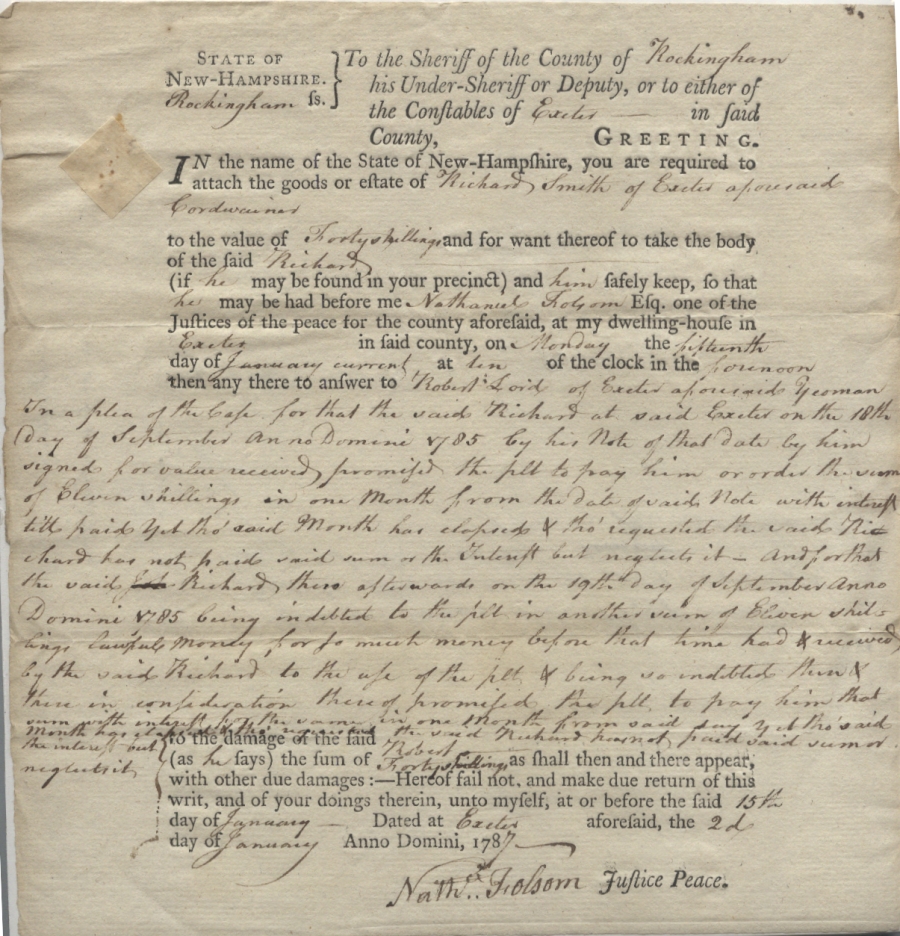 STATE OF
NEW-HAMPSHIRE.
Rockingham ſs.
To the Sheriff of the County of Rockingham
his Under-Sheriff or Deputy, or to either of
the Conſtables of Exeter — in ſaid
County, GREETING.
IN the name of the State of New-Hampſhire, you are required to
attach the goods or eſtate of Richard Smith of Exeter aforesaid
Cordwainer
to the value of Forty shillings and for want thereof to take the body
of the ſaid Richard
(if he may be found in your precinct) and him ſafely keep, ſo that
he may be had before me Nathaniel Folsom Eſq. one of the
Juſtices of the peace for the county aforeſaid, at my dwelling-houſe in
Exeter in ſaid county, on Monday the fifteenth
day of January current at ten of the clock in the forenoon
then any there to anſwer to Robert Lord of Exeter aforesaid Yeoman
In a plea of the Caſe for that the said Richard at said Exeter on the 18th
day of September Anno Domini 1785 by his Note of that date by him
signed for value received, promiſed the plt to pay him or order the sum
of Eleven shillings in one Month from the date of said Note with intereſt
till paid Yet tho' said Month has elapsed & tho' requested the said Ric
chard has not paid said sum or the Intereſt but neglects it — And for that
the said Richard there afterwards on the 19th day of September Anno
Domini 1785 being indebted to the plt in another sum of Eleven shil=
lings lawful Money, for so much money before that time had & received
by the said Richard to the uſe of the plt & being so indebted then &
there in conſideration thereof promiſed the plt to pay him that
sum with interest for the same in one Month from said day Yet tho said
Month has elapsed & tho requested the said Richard has not paid said sum or
the interest but
neglects it
to the damage of the ſaid Robert
(as he ſays) the ſum of Forty shillings as ſhall then and there appear,
with other due damages :—Hereof fail not, and make due return of this
writ, and of your doings therein, unto myſelf, at or before the ſaid 15th
day of January — Dated at Exeter aforeſaid, the 2d
day of January Anno Domini, 1787
Nath.ll Folsom Juſtice Peace.